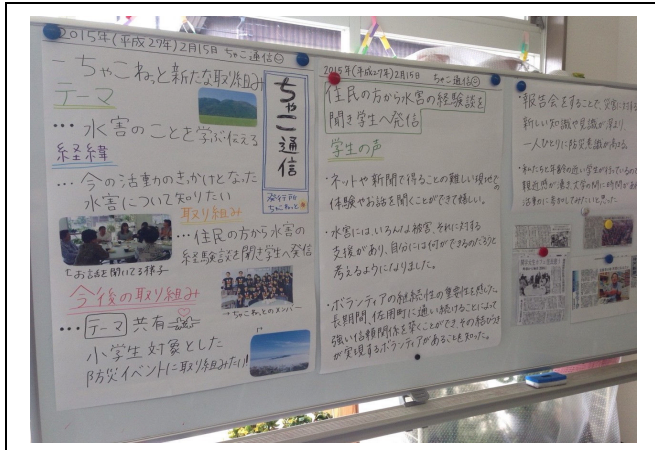 2015年(平成27年)2月15日 ちゃこ通信
ちゃこねっと新たな取り組み
テーマ
… 水害のことを学ぶ・伝える
経緯
… 今の活動のきっかけとなった
水害について知りたい
取り組み
… 住民の方から水害の
経験談を聞き学生へ発信
お話を聞いてる様子
→ちゃこねっとのメンバー
今後の取り組み
… テーマ 共有
小学生対象とした
防災イベントに取り組みたい!!
ちゃこ通信
発行所
ちゃこねっと
2015年(平成27年)2月15日 ちゃこ通信
住民の方から水害の経験談を
聞き学生へ発信
学生の声
・ネットや新聞で得ることの難しい現地での
体験やお話を聞くことができて嬉しい。
・水害にはいろんな被害、それに対する
支援があり、自分には何ができるのだろうと
考えるようになりました。
・ボランティアの継続性の重要性を感じた。
長期間、佐用町に通い続けることによって
強い信頼関係を築くことができ、その結びつき
が実現するボランティアがあることも知った。
・報告会をすることで、災害に対する
新しい知識や意識が深まり、
一人ひとりに防災意識が高まる。
・私たちと年齢の近い学生が行っているので
親近感が湧き、大学の間に時間があ
活動に参加してみたいと思った。